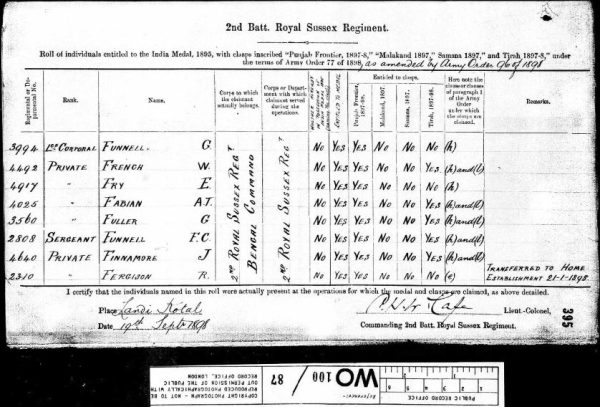 2nd Batt. Royal Sussex Regiment.
Roll of individuals entitled to the India Medal, 1895, with clasps inscribed "Punjab Frontier, 1897-8," "Malakand 1897," Samana 1897," and Tirah 1897-8," under
the terms of Army Order 77 of 1898, as amended by Army Order 96 of 1898
Regimental or Departmental No.
Rank.
Name.
Corps to which the claimant actually belongs.
Corps or Department with which claimant served during the operations.
ENTITLED TO MEDAL
Entitled to clasps.
Punjab Frontier, 1897-98.
Malakand, 1897.
Samana, 1897.
Tirah, 1897-98.
Here note the clauses of paragraph 1 of the Army Order under which the clasps are claimed.
Remarks.
2ND ROYAL SUSSEX REGT
BENGAL COMMAND
2ND ROYAL SUSSEX REGT
3994 Lce CORPORAL FUNNELL. G. No Yes Yes No No No (h)
4492 PRIVATE FRENCH W. No Yes Yes No No Yes (h) and (l)
4917 " FRY E. No Yes Yes No No No (h)
4025 " FABIAN A.T. No Yes Yes No No Yes (h) and (l)
3560 " FULLER G No Yes Yes No No Yes (h) and (l)
2808 SERGEANT FUNNELL F.C. No Yes Yes No No Yes (h) and (l)
4640 PRIVATE FINNAMORE J No Yes Yes No No Yes (h) and (l)
2310 " FERGISON R. No Yes Yes No No No (e) TRANSFERRED TO HOME ESTABLISHMENT 21-1-1898.
I certify that the individuals named in this roll were actually present at the operations for which the medal and clasps are claimed, as above detailed.
Place Landi Kotal
Lieut-Colonel,
Date 19th Septr 1898
Commanding 2nd Batt. Royal Sussex Regiment.
395
COPYRIGHT PHOTOGRAPH - NOT TO BE
REPRODUCED PHOTOGRAPHICALLY WITHOUT PERMISSION OF THE PUBLIC
RECORD OFFICE, LONDON
Reference:-
WO 100 / 87
1 2 3 4 5 6